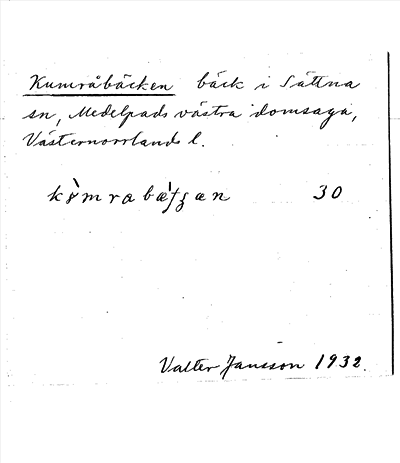 Kumråbäcken bäck i Sättna
sn, Medelpads västra domsaga,
Västernorrlands l.
30
Valter Jansson 1932.